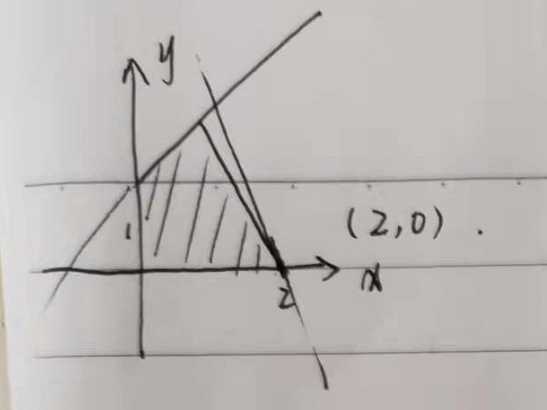 y
1
(2,0).
2
x